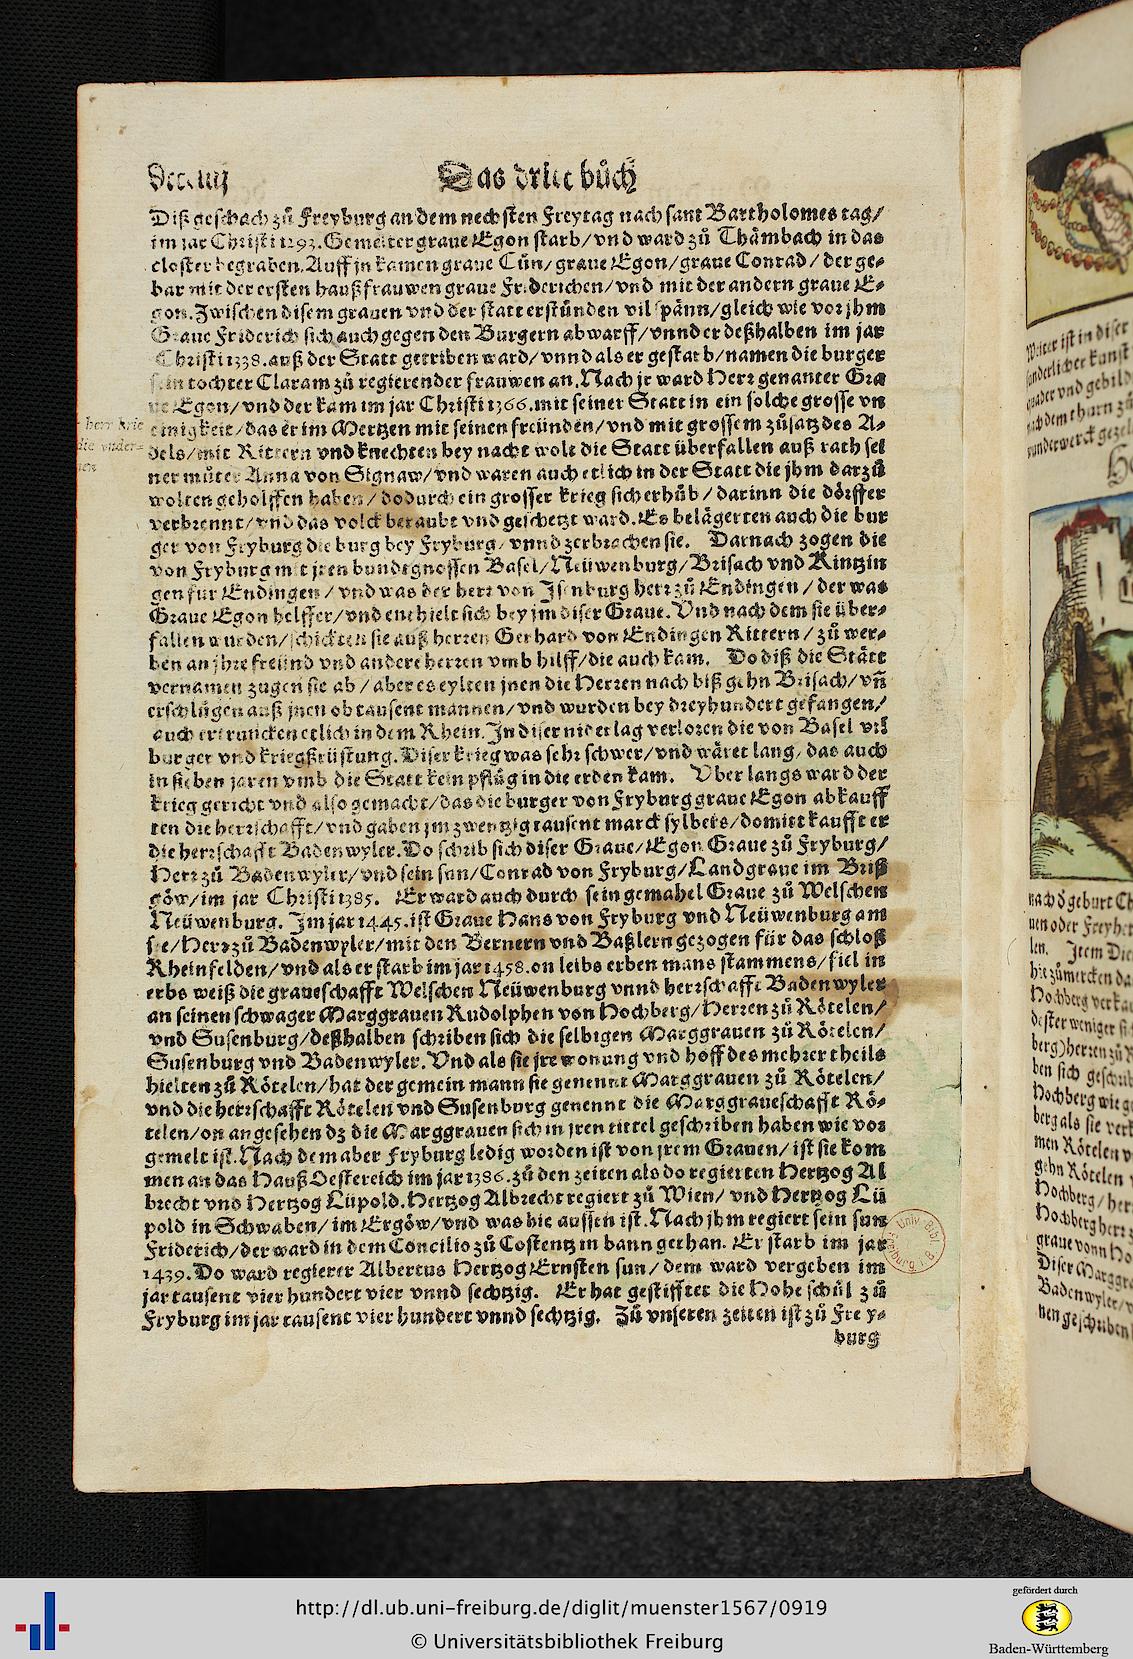 Das dritt bůch
Diß geschach zů Freyburg an dem nechsten Freytag nach sant Bartholomes tag/
im jar Christi 1293. Gemelter graue Egon starb/ vnd ward zů Thåmbach in das
closter begraben. Auff jn kamen graue Cůn/ graue Egon/ graue Conrad/ der ge⸗
bar mit der ersten haußfrauwen graue Friderichen/ vnd mit der andern graue E⸗
gon. Zwischen disem grauen vnd der statt erstůnden vil spånn/ gleich wie vor jhm
Graue Friderich sich auch gegen den Burgern abwarff/ vnnd er deßhalben im jar
Christi 1338. auß der Statt getriben ward/ vnnd als er gestarb/ namen die burger
sein tochter Claram zů regierender frauwen an. Nach jr ward Herr genanter Gra
ue Egon/ vnd der kam im jar Christi 1366. mit seiner Statt in ein solche grosse vn
einigkeit/ das er im Mertzen mit seinen freünden/ vnd mit grossem zůsatz des A⸗
dels/ mit Rittern vnd knechten bey nacht wolt die Statt überfallen auß rath sei
ner můter Anna von Signaw/ vnd waren auch etlich in der Statt die jhm darzů
wolten geholffen haben/ dodurch ein grosser krieg sich erhůb/ darinn die dörffer
verbrennt/ vnd das volck beraubt vnd geschetzt ward. Es belågerten auch die bur
ger von Fryburg die burg bey Fryburg/ vnnd zerbrachen sie. Darnach zogen die
von Fryburg mit jren bundtgnossen Basel/ Neüwenburg/ Brisach vnd Kintzin
gen für Endingen/ vnd was der herr von Isenburg herr zů Endingen/ der was
Graue Egon helffer/ vnd enthielt sich bey jm diser Graue. Vnd nach dem sie über⸗
fallen wurden/ schickten sie auß herren Gerhard von Endingen Rittern/ zů wer⸗
ben an jhre freünd vnd andere herren vmb hilff/ die auch kam. Do diß die Stått
vernamen zugen sie ab/ aber es eylten jnen die Herren nach biß gehn Brisach/ vñ
erschlůgen auß jnen ob tausent mannen/ vnd wurden bey dreyhundert gefangen/
auch ertruncken etlich in dem Rhein. In diser niderlag verloren die von Basel vil
burger vnd kriegßrüstung. Diser krieg was sehr schwer/ vnd wåret lang/ das auch
in siben jaren vmb die Statt kein pflůg in die erden kam. Vber langs ward der
krieg gericht vnd also gemacht/ das die burger von Fryburg graue Egon abkauff
ten die herrschafft/ vnd gaben jm zwentzig tausent marck sylbers/ domitt kaufft er
die herrschafft Badenwyler. Do schrib sich diser Graue/ Egon Graue zů Fryburg/
Herr zů Badenwyler/ vnd sein sun/ Conrad von Fryburg/ Landgraue im Briß
göw/ im jar Christi 1385. Er ward auch durch sein gemahel Graue zů Welschen
Neüwenburg. Im jar 1445. ist Graue Hans von Fryburg vnd Neüwenburg am
See/ Herr zů Badenwyler/ mit den Bernern vnd Baßlern gezogen für das schloß
Rheinfelden/ vnd als er starb im jar 1458. on leibs erben mans stammens/ fiel in
erbs weiß die graueschafft Welschen Neüwenburg vnnd herrschafft Badenwyler
an seinen schwager Marggrauen Rudolphen von Hochberg/ Herren zů Rötelen/
vnd Susenburg/ deßhalben schriben sich die selbigen Marggrauen zů Rötelen/
Susenburg vnd Badenwyler. Vnd als sie jre wonung vnd hoff des mehrer theils
hielten zů Rötelen/ hat der gemein mann sie genennt Marggrauen zů Rötelen/
vnd die herrschafft Rötelen vnd Susenburg genennt die Marggraueschafft Rö⸗
telen/ on angesehen dz die Marggrauen sich in jren tittel geschriben haben wie vor
gemelt ist. Nach dem aber Fryburg ledig worden ist von jrem Grauen/ ist sie kom
men an das Hauß Oestereich im jar 1386. zů den zeiten als do regierten Hertzog Al
brecht vnd Hertzog Lüpold. Hertzog Albrecht regiert zů Wien/ vnd Hertzog Lü
pold in Schwaben/ im Ergöw/ vnd was hie aussen ist. Nach jhm regiert sein sun
Friderich/ der ward in dem Concilio zů Costentz in bann gethan. Er starb im jar
1439. Do ward regierer Albertus Hertzog Ernsten sun/ dem ward vergeben im
jar tausent vier hundert vier vnnd sechtzig. Er hat gestifftet die Hohe schůl zů
Fryburg im jar tausent vier hundert vnnd sechtzig. Zů vnseren zeiten ist zů Frey⸗
burg
herr krie
die vnder⸗
nen
Univ. Bibl.
Freiburg i. B.
http://dl.ub.uni-freiburg.de/diglit/muenster1567/0919
© Universitätsbibliothek Freiburg
gefördert durch
Baden-Württemberg